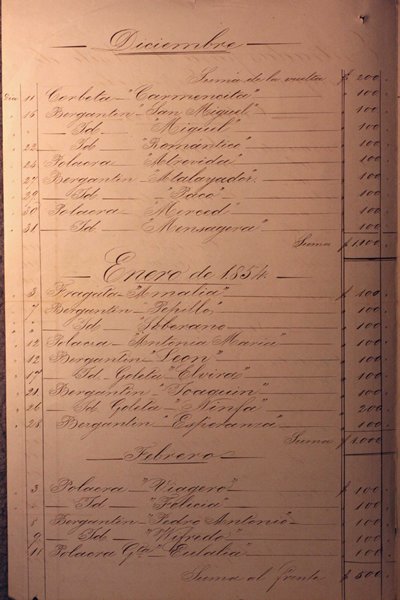 Diciembre
Suma de la vuelta $ 200.
Dia 11 Corbeta "Carmencita" 100.
" 15 Bergantin "San Miguel" 100.
" " Id "Miguel" 100.
" 22 Id "Romantico" 100.
" 24 Polacra "Atrevida" 100.
" 27 Bergantin "Atalayador" 100.
" 29 Id "Paco" 100.
" 30 Polacra "Merced" 100.
" 31 Id "Mensagera" 100.
Suma $ 1.100
Enero de 1854.
" 3 Fragata "Amalia" $ 100.
" 7 Bergantin "Pepillo" 100.
" " Id "Soberano 100.
" 12 Polacra "Antonia Maria" 100.
" 12 Bergantin "Leon" 100.
" 17 Id. Goleta "Elvira" 100.
" 21 Bergantin "Joaquin" 100.
" 26 Id. Goleta "Ninfa" 200.
" 28 Bergantin "Esperanza" 100.
Suma $ 1.000
Febrero
" 3 Polacra "Viagero" $ 100.
" " Id "Felicia" 100.
" 8 Bergantin "Pedro Antonio" 100.
" 9 Id "Wifredo" 100.
" 11 Polacra Gta "Eulalia" 100.
Suma al frente $ 500.